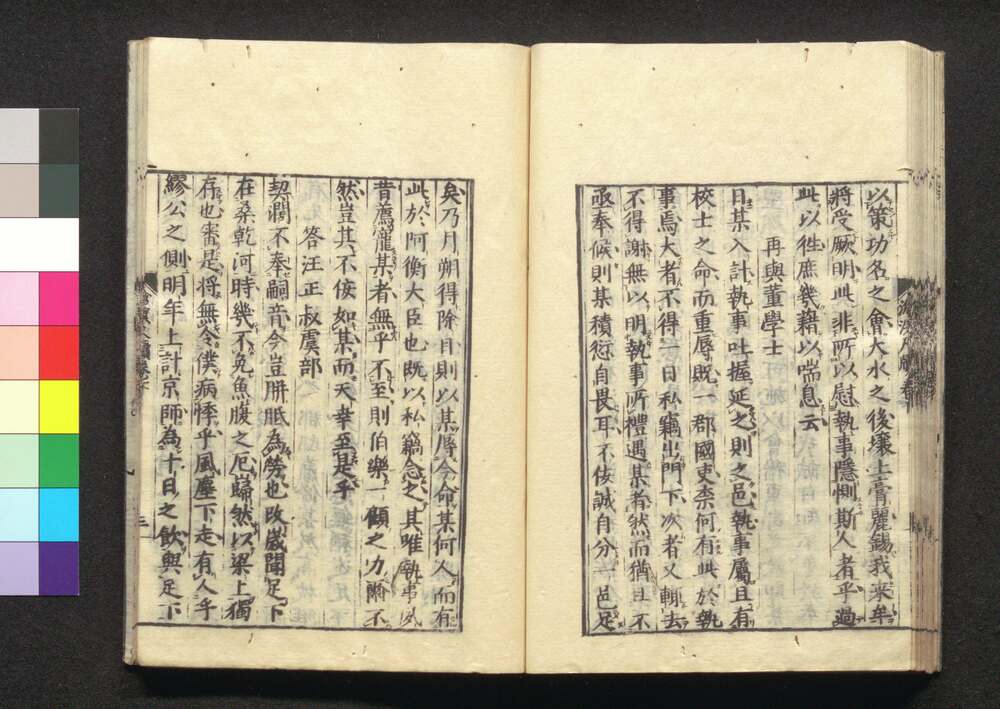 以策功名之會大水之後壤土膏麗錫我來牟
將受厥明此非所以慰執事隱惻斯人者乎過
此以徃庶幾藉以喘息云
再與董學士
日某入計執事吐握延之則之邑執事屬且有
校士之命而重辱既一郡國吏柰何有此於執
事焉大者不得一日私竊出門下次者又輒去
不得謝無以明執事所禮遇某者然而猶且不
亟奉候則某積愆自畏耳不佞誠自分一邑足
矣乃月朔得除目則以某辱今命某何人而有
此於阿衡大臣也既以私竊念之其唯執事夙
昔薦寵某者無乎不至則伯樂一顧之力爾不
然豈其不佞如某而天幸至是乎
答汪正叔虞部
契濶不奉嗣音今豈胼胝為勞也改歲聞足下
在桑乾河時幾不免魚腹之厄巋然以梁上獨
存也審是將無令僕病悸乎風塵下走有人乎
繆公之側明年上計京師為十日之飲與足下